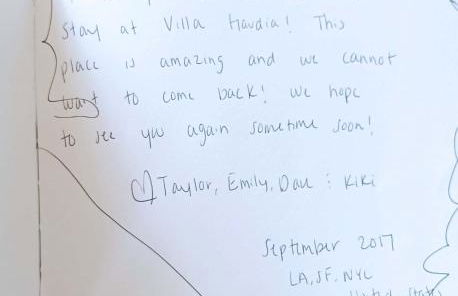 stay at Villa Haudia! This
place is amazing and we cannot
want to come back! we hope
to see you again sometime soon!
♡ Taylor, Emily, Dan : Kiki
September 2017
LA, SF, NYC
United States